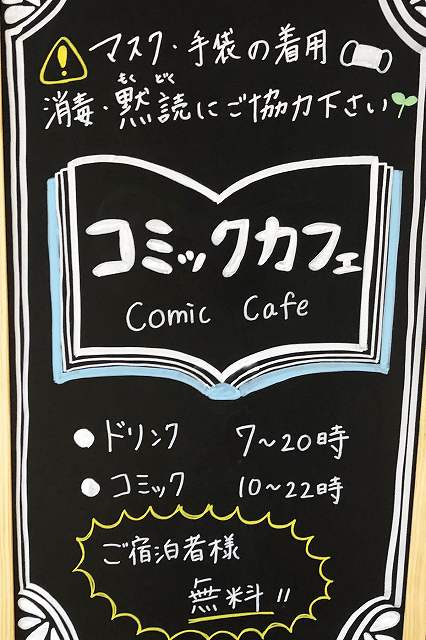 マスク・手袋の着用
もく どく
消毒・黙読にご協力下さい
コミックカフェ
Comic Cafe
● ドリンク 7〜20時
● コミック 10〜22時
ご宿泊者様
無料!!